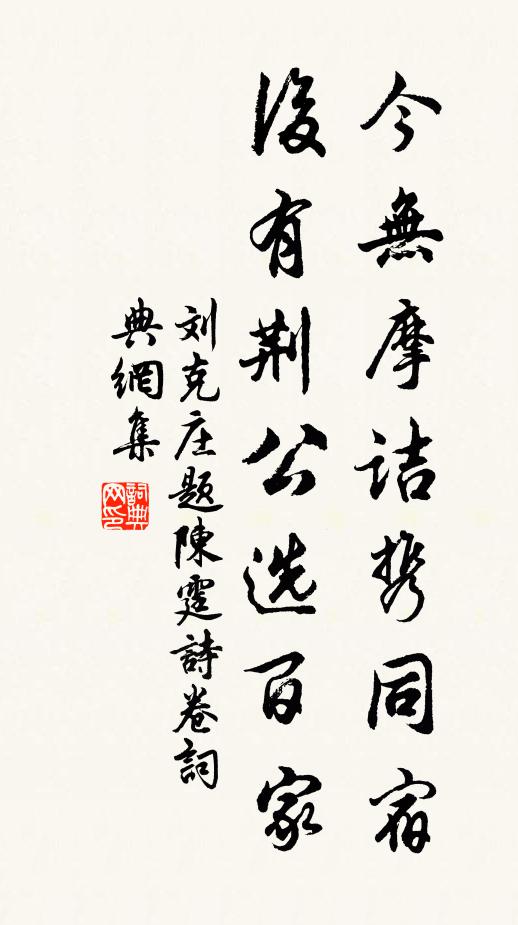 今無摩詰携同宿
後有荆公选百家
刘克庄題陳霆詩卷詞
典網集
詞典
网印